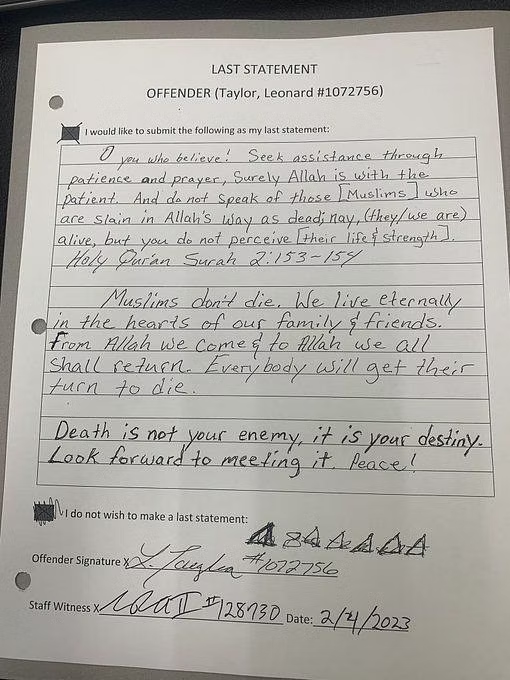 LAST STATEMENT
OFFENDER (Taylor, Leonard #1072756)
I would like to submit the following as my last statement:
O you who believe! Seek assistance through
patience and prayer, Surely Allah is with the
patient. And do not speak of those [Muslims] who
are slain in Allah's way as dead; nay, (they/we are)
alive, but you do not perceive [their life & strength].
Holy Qur'an Surah 2:153-154
Muslims don't die. We live eternally
in the hearts of our family & friends.
From Allah we come & to Allah we all
shall return. Everybody will get their
turn to die.
Death is not your enemy, it is your destiny.
Look forward to meeting it. Peace!
I do not wish to make a last statement:
Offender Signature X L. Taylor #1072756
Staff Witness X #128730 Date: 2/4/2023